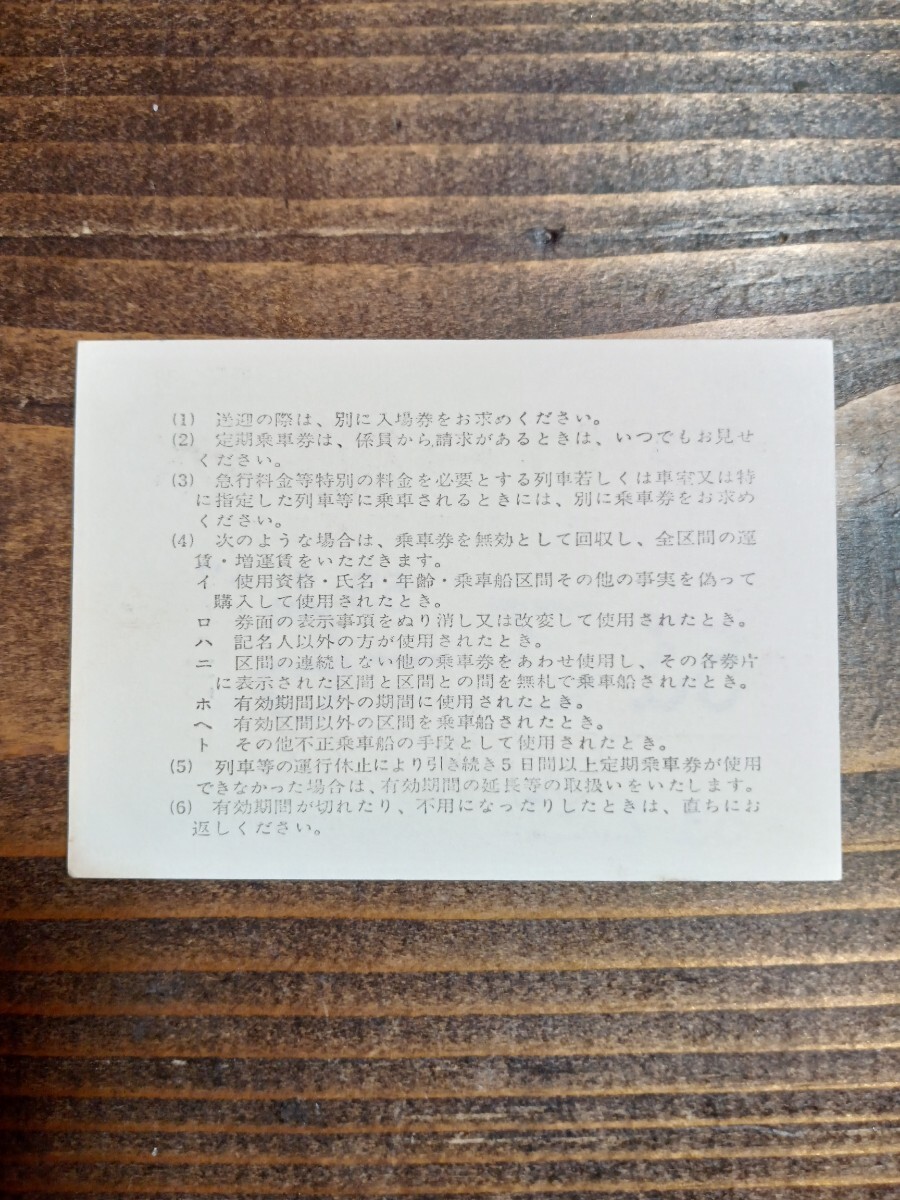 (1) 送迎の際は、別に入場券をお求めください。
(2) 定期乗車券は、係員から請求があるときは、いつでもお見せ
ください。
(3) 急行料金等特別の料金を必要とする列車若しくは車室又は特
に指定した列車等に乗車されるときには、別に乗車券をお求め
ください。
(4) 次のような場合は、乗車券を無効として回収し、全区間の運
賃・増運賃をいただきます。
イ 使用資格・氏名・年齢・乗車船区間その他の事実を偽って
購入して使用されたとき。
ロ 券面の表示事項をぬり消し又は改変して使用されたとき。
ハ 記名人以外の方が使用されたとき。
ニ 区間の連続しない他の乗車券をあわせ使用し、その各券片
に表示された区間と区間との間を無札で乗車船されたとき。
ホ 有効期間以外の期間に使用されたとき。
ヘ 有効区間以外の区間を乗車船されたとき。
ト その他不正乗車船の手段として使用されたとき。
(5) 列車等の運行休止により引き続き5日間以上定期乗車券が使用
できなかった場合は、有効期間の延長等の取扱いをいたします。
(6) 有効期間が切れたり、不用になったりしたときは、直ちにお
返しください。